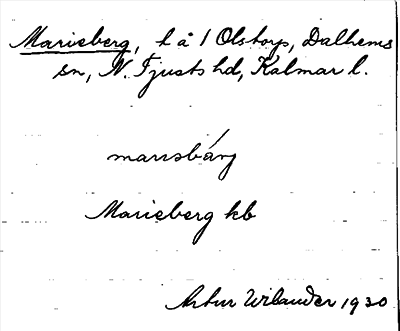 Marieberg, l å 1 Olstorp, Dalhems
sn, N. Tjusts hd, Kalmar l.
marısbárj
Marieberg kb
Artur Wilander 1930